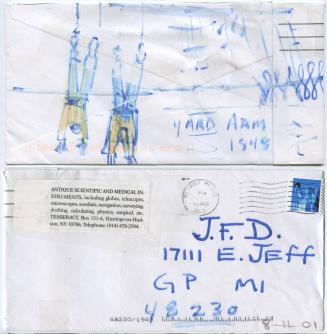 YARD ARM
1848
ANTIQUE SCIENTIFIC AND MEDICAL IN-
STRUMENTS, including globes, telescopes,
microscopes, sundials, navigation, surveying,
drafting, calculating, physics, surgical, etc.
TESSERACT, Box 151-A, Hastings-on-Hud-
son, NY 10706. Telephone: (914) 478-2594.
J.F.D.
17111 E. JEFF
GP MI
48230
48230/1949
8-11-01